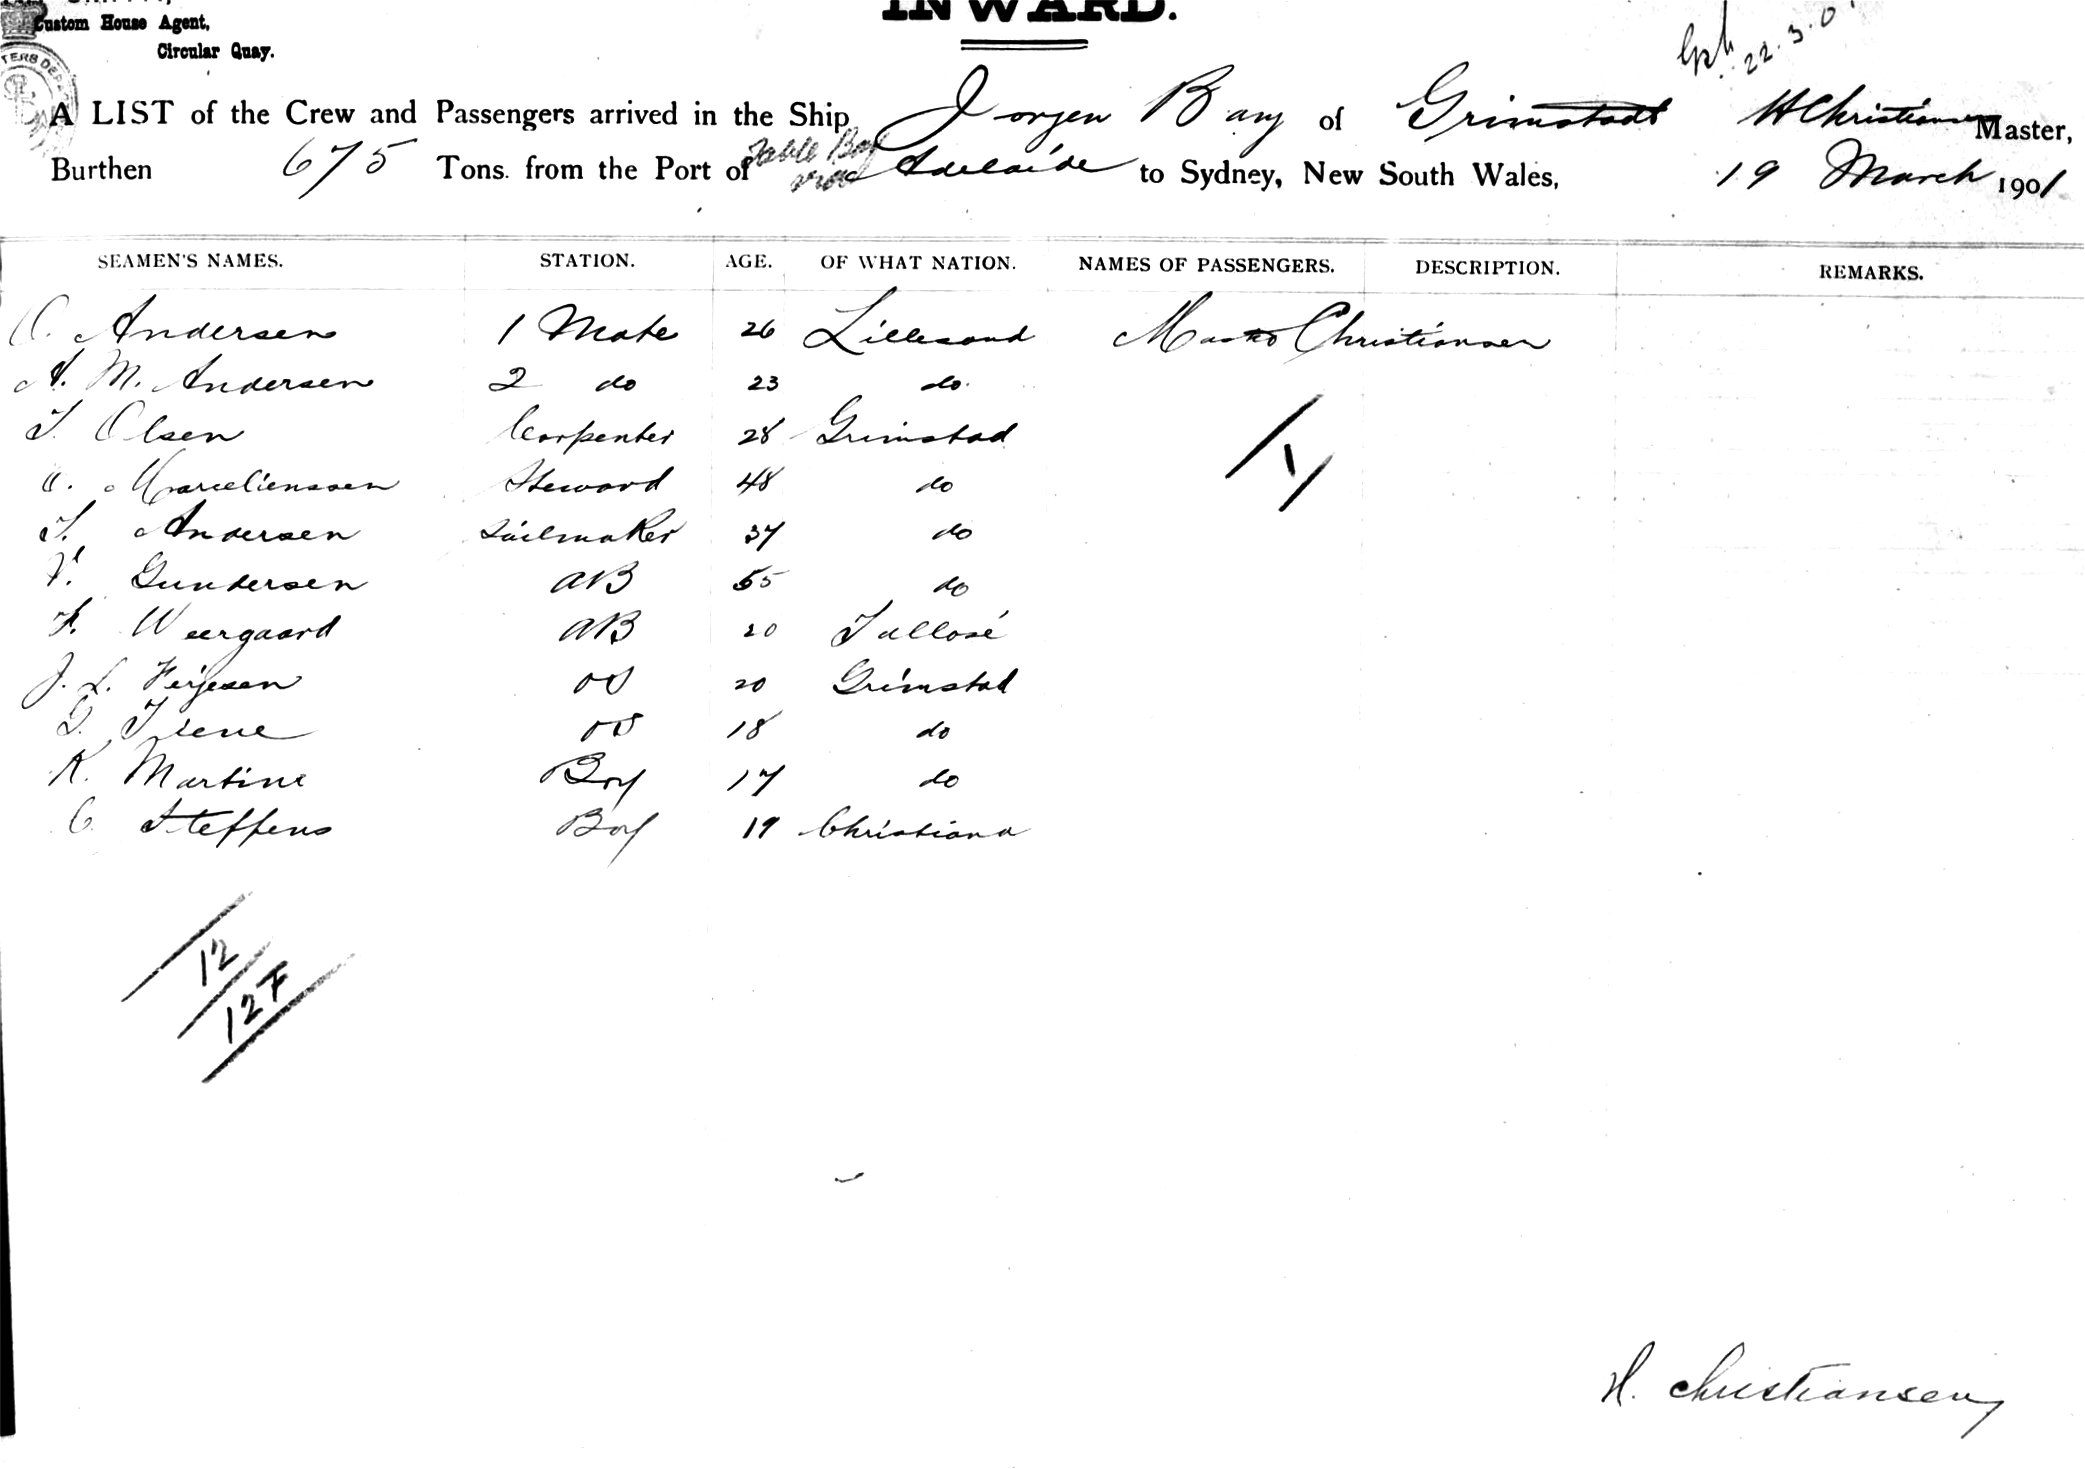 Custom House Agent,
Circular Quay.
INWARD.
22.3.0
A LIST of the Crew and Passengers arrived in the Ship Jorgen Bang of Grimstadt H Christiansen Master,
Burthen 675 Tons. from the Port of Table Bay Adelaide to Sydney, New South Wales, 19 March 1901
SEAMEN'S NAMES. STATION. AGE. OF WHAT NATION. NAMES OF PASSENGERS. DESCRIPTION. REMARKS.
O. Andersen 1 Mate 26 Lillesand Christiansen
A. M. Andersen 2 do 23 do.
T. Olsen Carpenter 28 Grimstad
Marcelienssen Steward 48 do
T. Andersen Sailmaker 37 do
Gundersen AB 55 do
F. Weergaard AB 20 Tullosé
J. L. Feijesen OS 20 Grimstad
G. Tiene OS 18 do
K. Martine Boy 17 do
C. Steffens Boy 19 Christiana
1
12
12 F
H. Christiansen